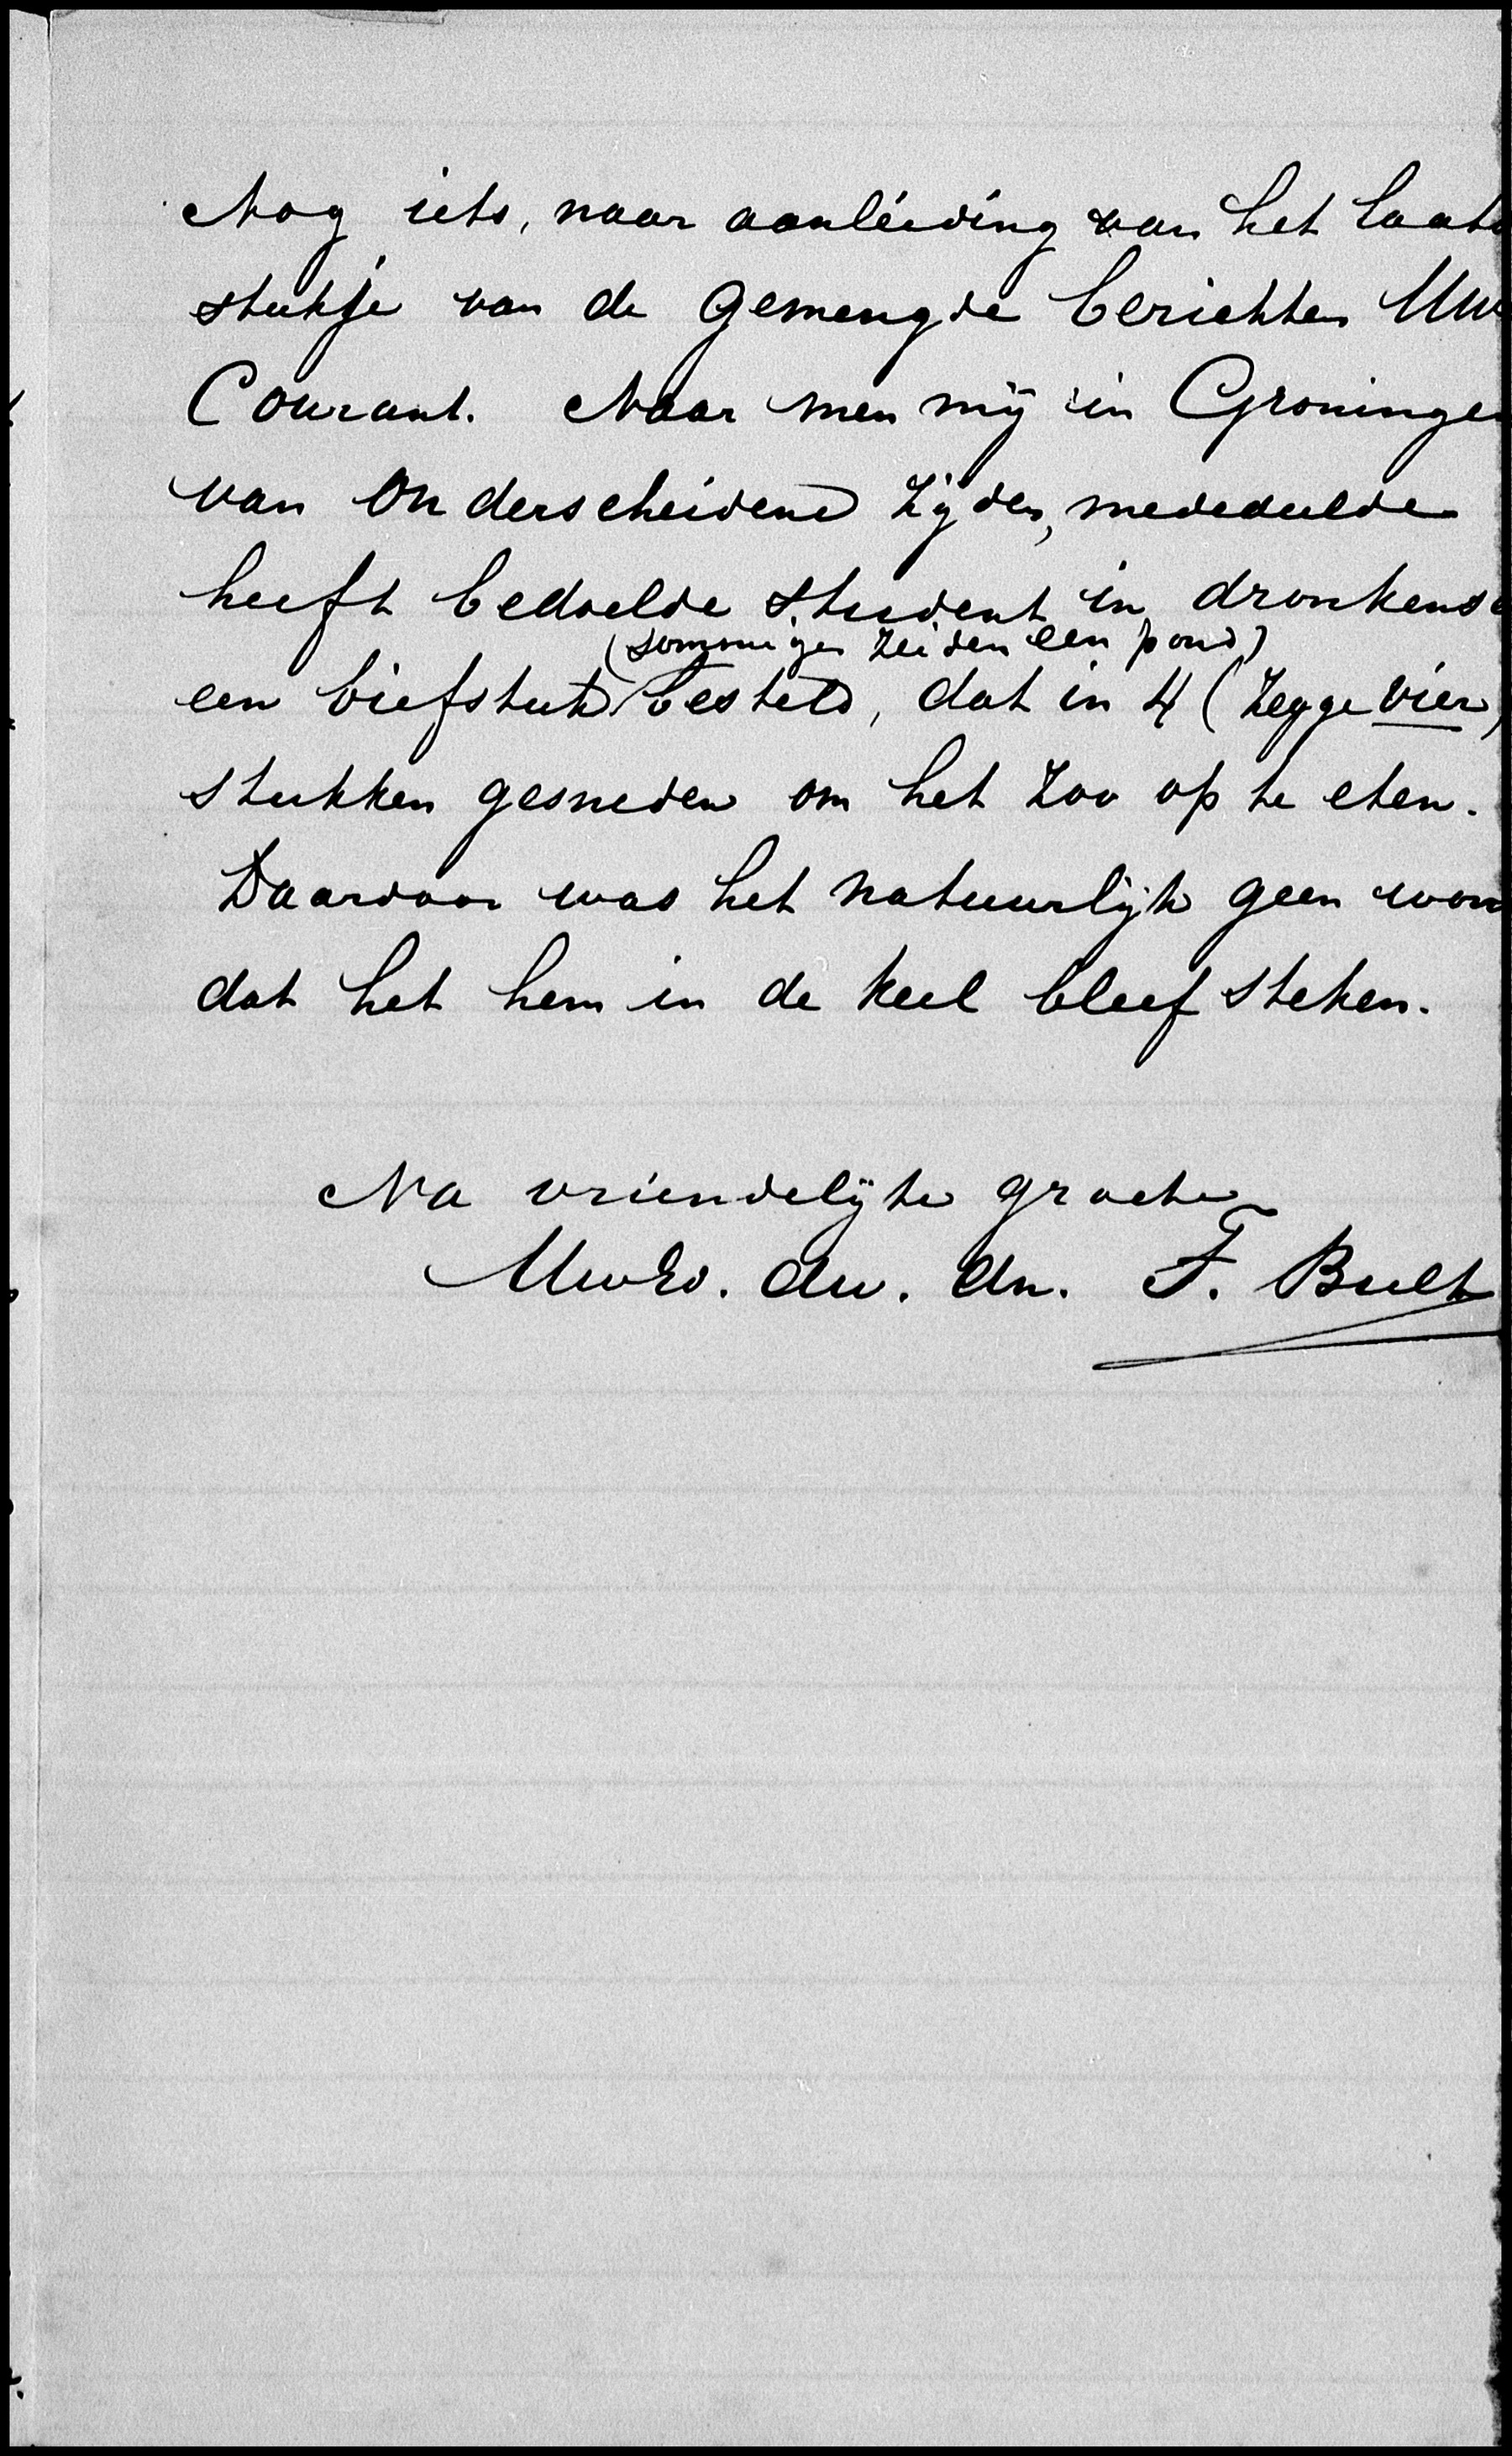 Nog iets, naar aanleiding van het laats
stukje van de gemengde berichten Uw
Courant. Naar men mij in Groninge
van onderscheidene zijden, mededeelde
heeft bedoelde student in dronkensc
(sommigen zeiden een pond)
een biefstuk besteld, dat in 4 (zegge vier)
stukken gesneden om het zoo op te eten.
Daardoor was het natuurlijk geen won
dat het hem in de keel bleef steken.
Na vriendelijke groete
UwEd. dw. dn. F. Bult